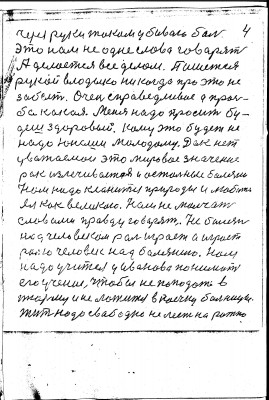 4
через руки током убивать бол
Это нам не одне слова говорят
А делается все делом. Пишется
рукой владыки никогда про это не
забыть. Очен справедливае а прось-
ба какая. Меня надо просить бу-
деш здоровый. Кому это будет не
надо юноши молодому. Даже нет
уважаемои это мировое значение
рак излечивается и остольные болезни
Нам надо кланится природы и любить
ея как великою. Нам не молчат
словами правду говорят. Не болезн
над человеком рал играет а играет
рал человек над болезнию. Нам
надо учится у иванова понимать
его учение, чтобы не поподать в
тюрму и не ложится в коечку больницы.
Жит надо свободно не лезт на ротно